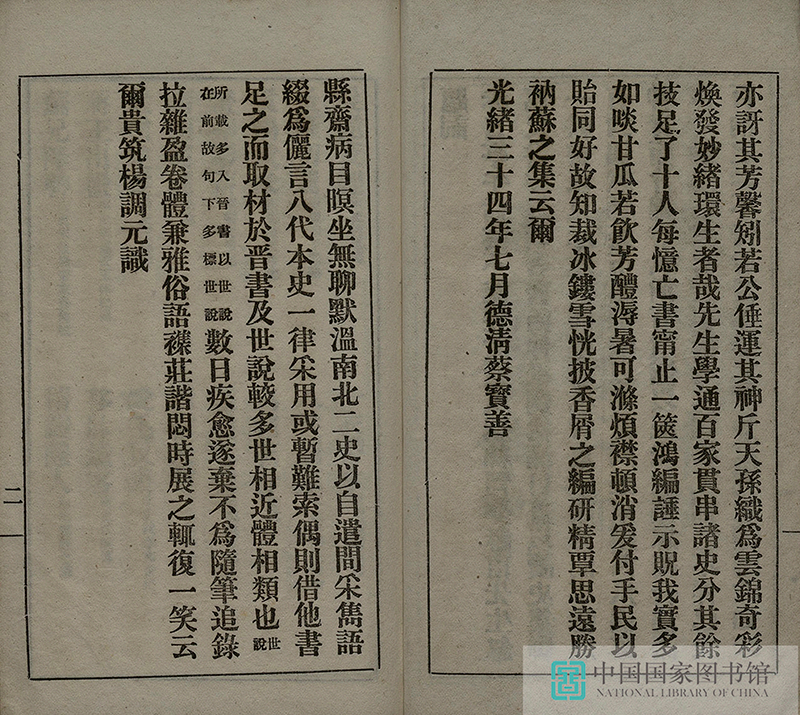 亦訝其芳馨矧若公倕運其神斤天孫織爲雲錦奇彩
煥發妙緒環生者哉先生學通百家貫串諸史分其餘
技足了十人每憶亡書甯止一篋鴻編誰示貺我實多
如啖甘瓜若飲芳醴溽暑可滌煩襟頓消爰付手民以
貽同好故知裁冰鏤雪恍披香屑之編研精覃思遠勝
衲蘇之集云爾
光緒三十四年七月德淸蔡寶善
縣齋病目瞑坐無聊默溫南北二史以自遣間采雋語
綴爲儷言八代本史一律采用或暫難索偶則借他書
足之而取材於晋書及世說較多世相近體相類也世說
所載多入晉書以世說在前故句下多標世說數日疾愈遂棄不爲隨筆追錄
拉雜盈卷體兼雅俗語襍莊諧悶時展之輒復一笑云
爾貴筑楊調元識
二
中国国家图书馆
NATIONAL LIBRARY OF CHINA